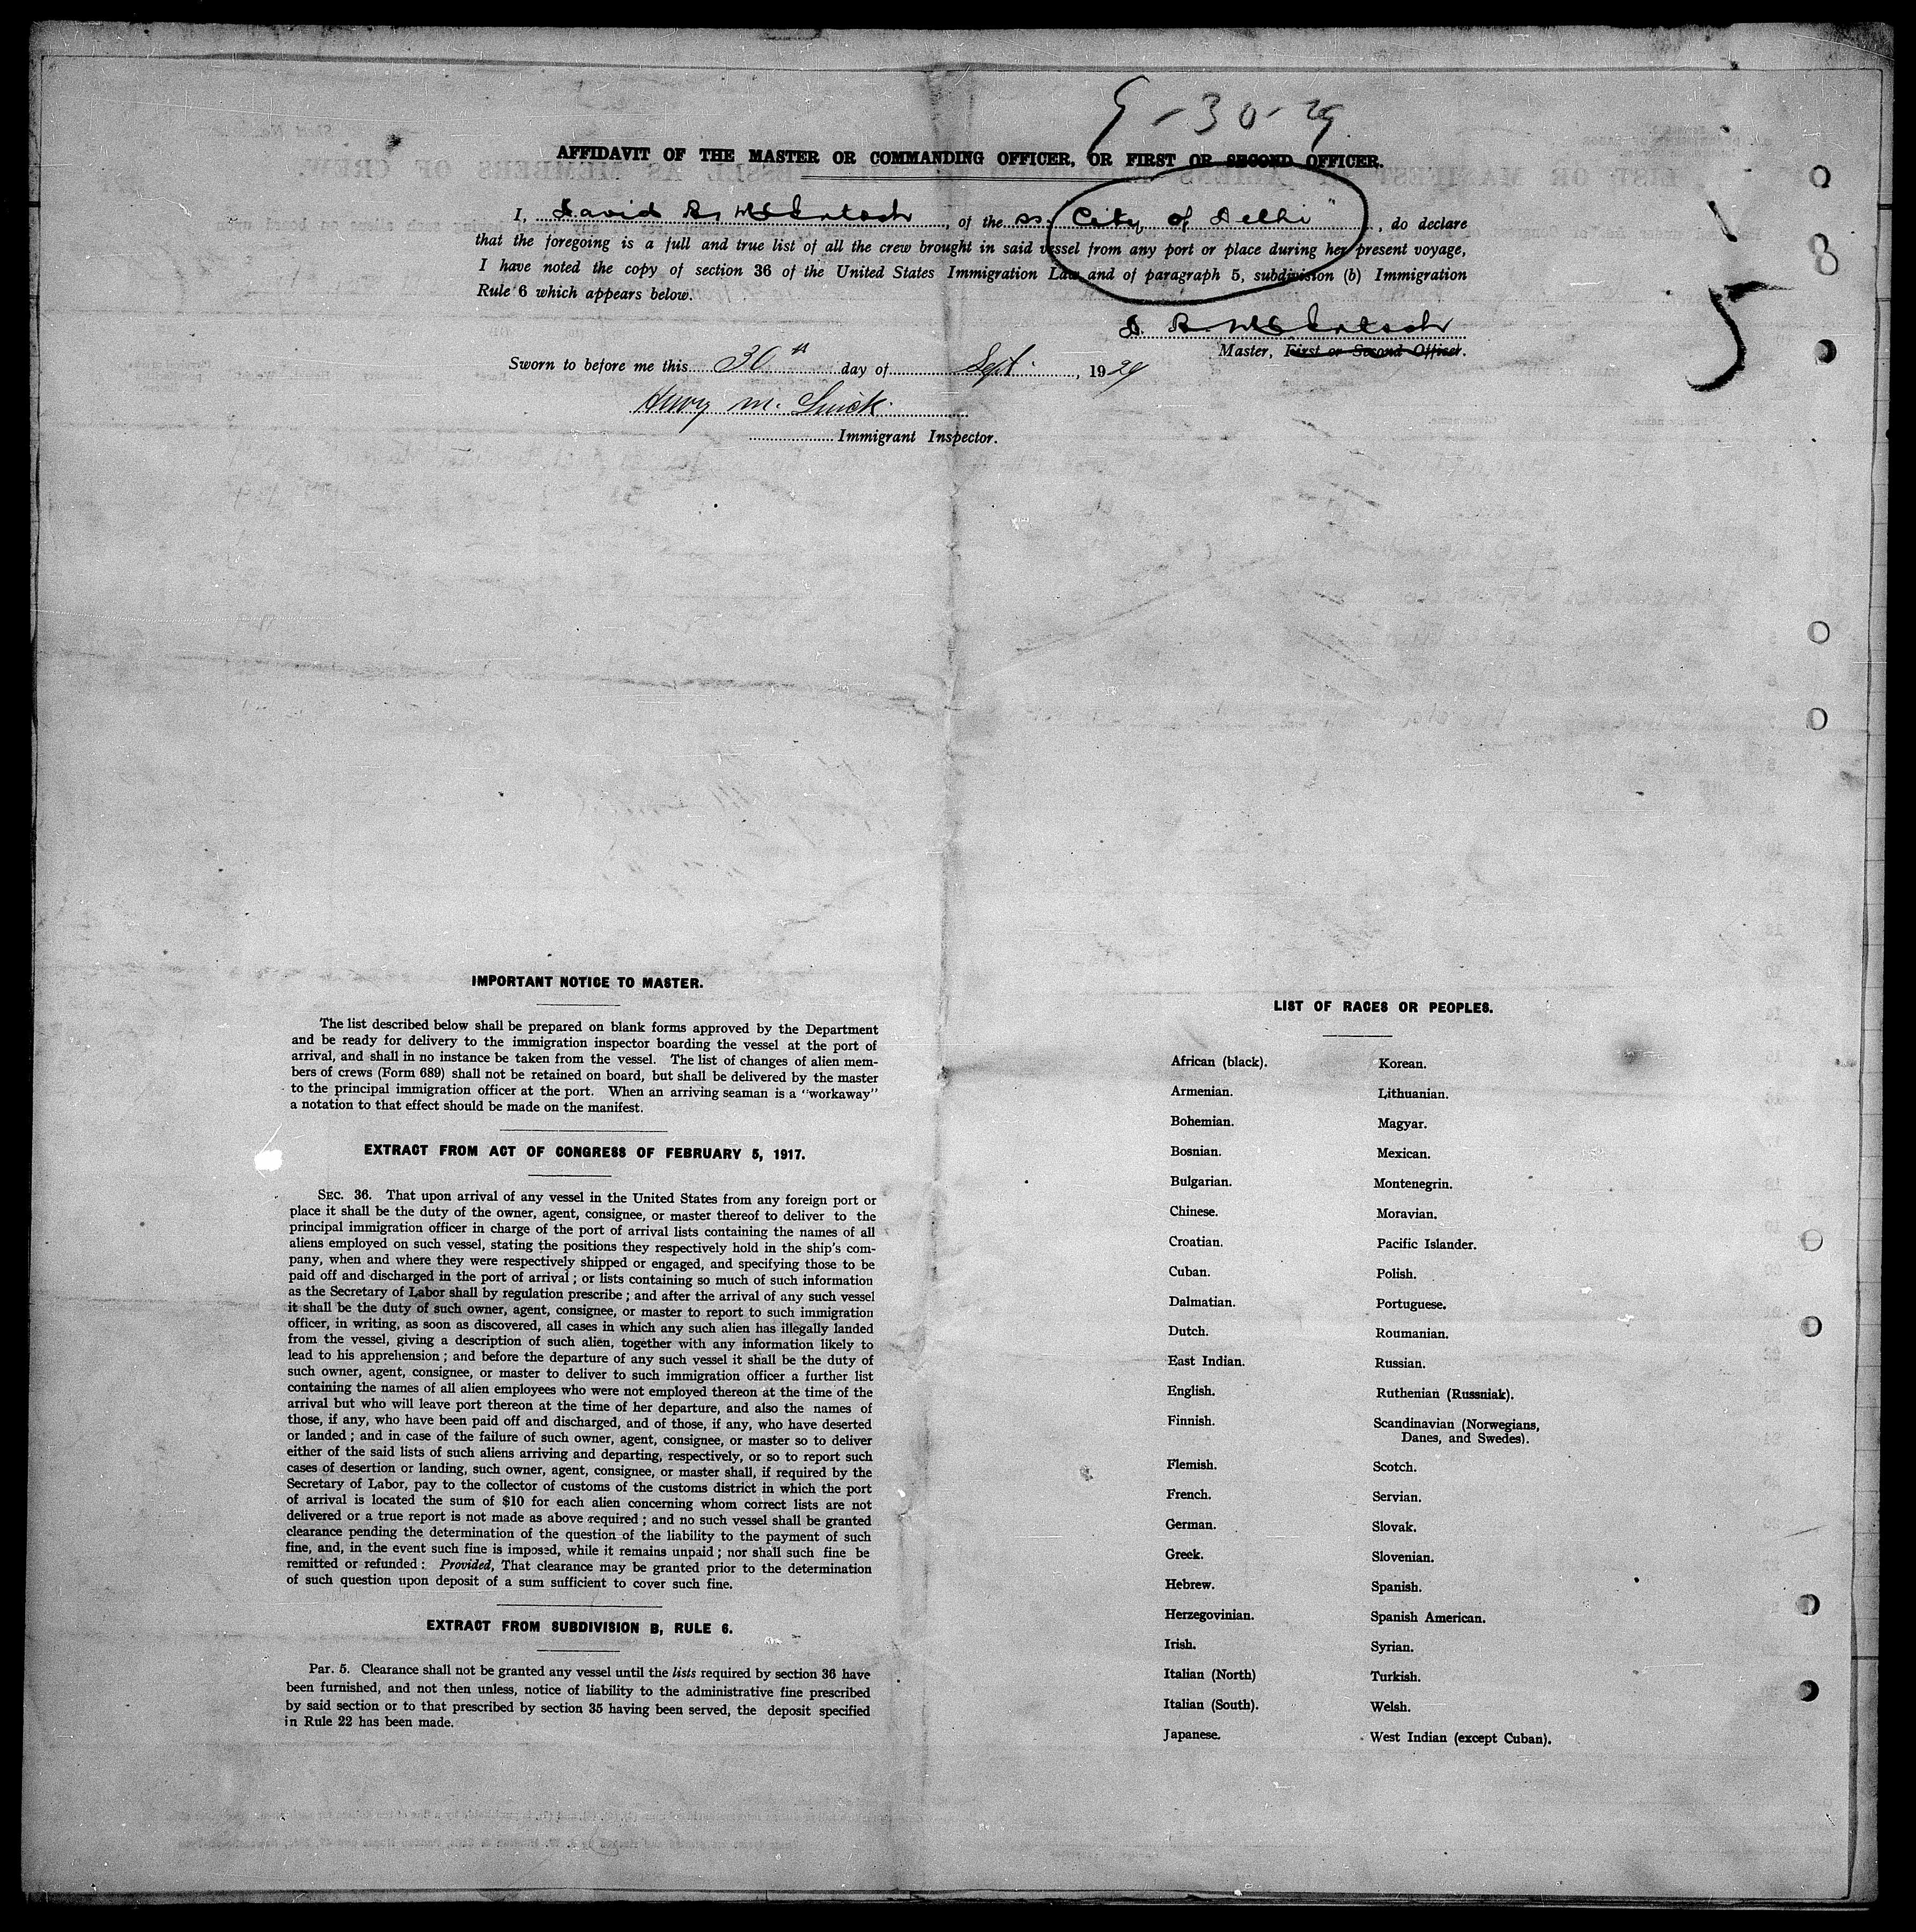 9-30-29
AFFIDAVIT OF THE MASTER OR COMMANDING OFFICER, OR FIRST OR SECOND OFFICER.
I, David R. McIntosh, of the ss. "City of Delhi", do declare
that the foregoing is a full and true list of all the crew brought in said vessel from any port or place during her present voyage,
I have noted the copy of section 36 of the United States Immigration Law and of paragraph 5, subdivision (b) Immigration
Rule 6 which appears below.
5
D. R. McIntosh
Master, First or Second Officer.
Sworn to before me this 30th day of Sept., 1929
Henry M.
Immigrant Inspector.
IMPORTANT NOTICE TO MASTER.
The list described below shall be prepared on blank forms approved by the Department
and be ready for delivery to the immigration inspector boarding the vessel at the port of
arrival, and shall in no instance be taken from the vessel. The list of changes of alien mem-
bers of crews (Form 689) shall not be retained on board, but shall be delivered by the master
to the principal immigration officer at the port. When an arriving seaman is a "workaway"
a notation to that effect should be made on the manifest.
EXTRACT FROM ACT OF CONGRESS OF FEBRUARY 5, 1917.
SEC. 36. That upon arrival of any vessel in the United States from any foreign port or
place it shall be the duty of the owner, agent, consignee, or master thereof to deliver to the
principal immigration officer in charge of the port of arrival lists containing the names of all
aliens employed on such vessel, stating the positions they respectively hold in the ship's com-
pany, when and where they were respectively shipped or engaged, and specifying those to be
paid off and discharged in the port of arrival; or lists containing so much of such information
as the Secretary of Labor shall by regulation prescribe; and after the arrival of any such vessel
it shall be the duty of such owner, agent, consignee, or master to report to such immigration
officer, in writing, as soon as discovered, all cases in which any such alien has illegally landed
from the vessel, giving a description of such alien, together with any information likely to
lead to his apprehension; and before the departure of any such vessel it shall be the duty of
such owner, agent, consignee, or master to deliver to such immigration officer a further list
containing the names of all alien employees who were not employed thereon at the time of the
arrival but who will leave port thereon at the time of her departure, and also the names of
those, if any, who have been paid off and discharged, and of those, if any, who have deserted
or landed; and in case of the failure of such owner, agent, consignee, or master so to deliver
either of the said lists of such aliens arriving and departing, respectively, or so to report such
cases of desertion or landing, such owner, agent, consignee, or master shall, if required by the
Secretary of Labor, pay to the collector of customs of the customs district in which the port
of arrival is located the sum of $10 for each alien concerning whom correct lists are not
delivered or a true report is not made as above required; and no such vessel shall be granted
clearance pending the determination of the question of the liability to the payment of such
fine, and, in the event such fine is imposed, while it remains unpaid; nor shall such fine be
remitted or refunded: Provided, That clearance may be granted prior to the determination
of such question upon deposit of a sum sufficient to cover such fine.
EXTRACT FROM SUBDIVISION B, RULE 6.
Par. 5. Clearance shall not be granted any vessel until the lists required by section 36 have
been furnished, and not then unless, notice of liability to the administrative fine prescribed
by said section or to that prescribed by section 35 having been served, the deposit specified
in Rule 22 has been made.
LIST OF RACES OR PEOPLES.
African (black). Korean.
Armenian. Lithuanian.
Bohemian. Magyar.
Bosnian. Mexican.
Bulgarian. Montenegrin.
Chinese. Moravian.
Croatian. Pacific Islander.
Cuban. Polish.
Dalmatian. Portuguese.
Dutch. Roumanian.
East Indian. Russian.
English. Ruthenian (Russniak).
Finnish. Scandinavian (Norwegians,
Danes, and Swedes).
Flemish. Scotch.
French. Servian.
German. Slovak.
Greek. Slovenian.
Hebrew. Spanish.
Herzegovinian. Spanish American.
Irish. Syrian.
Italian (North) Turkish.
Italian (South). Welsh.
Japanese. West Indian (except Cuban).